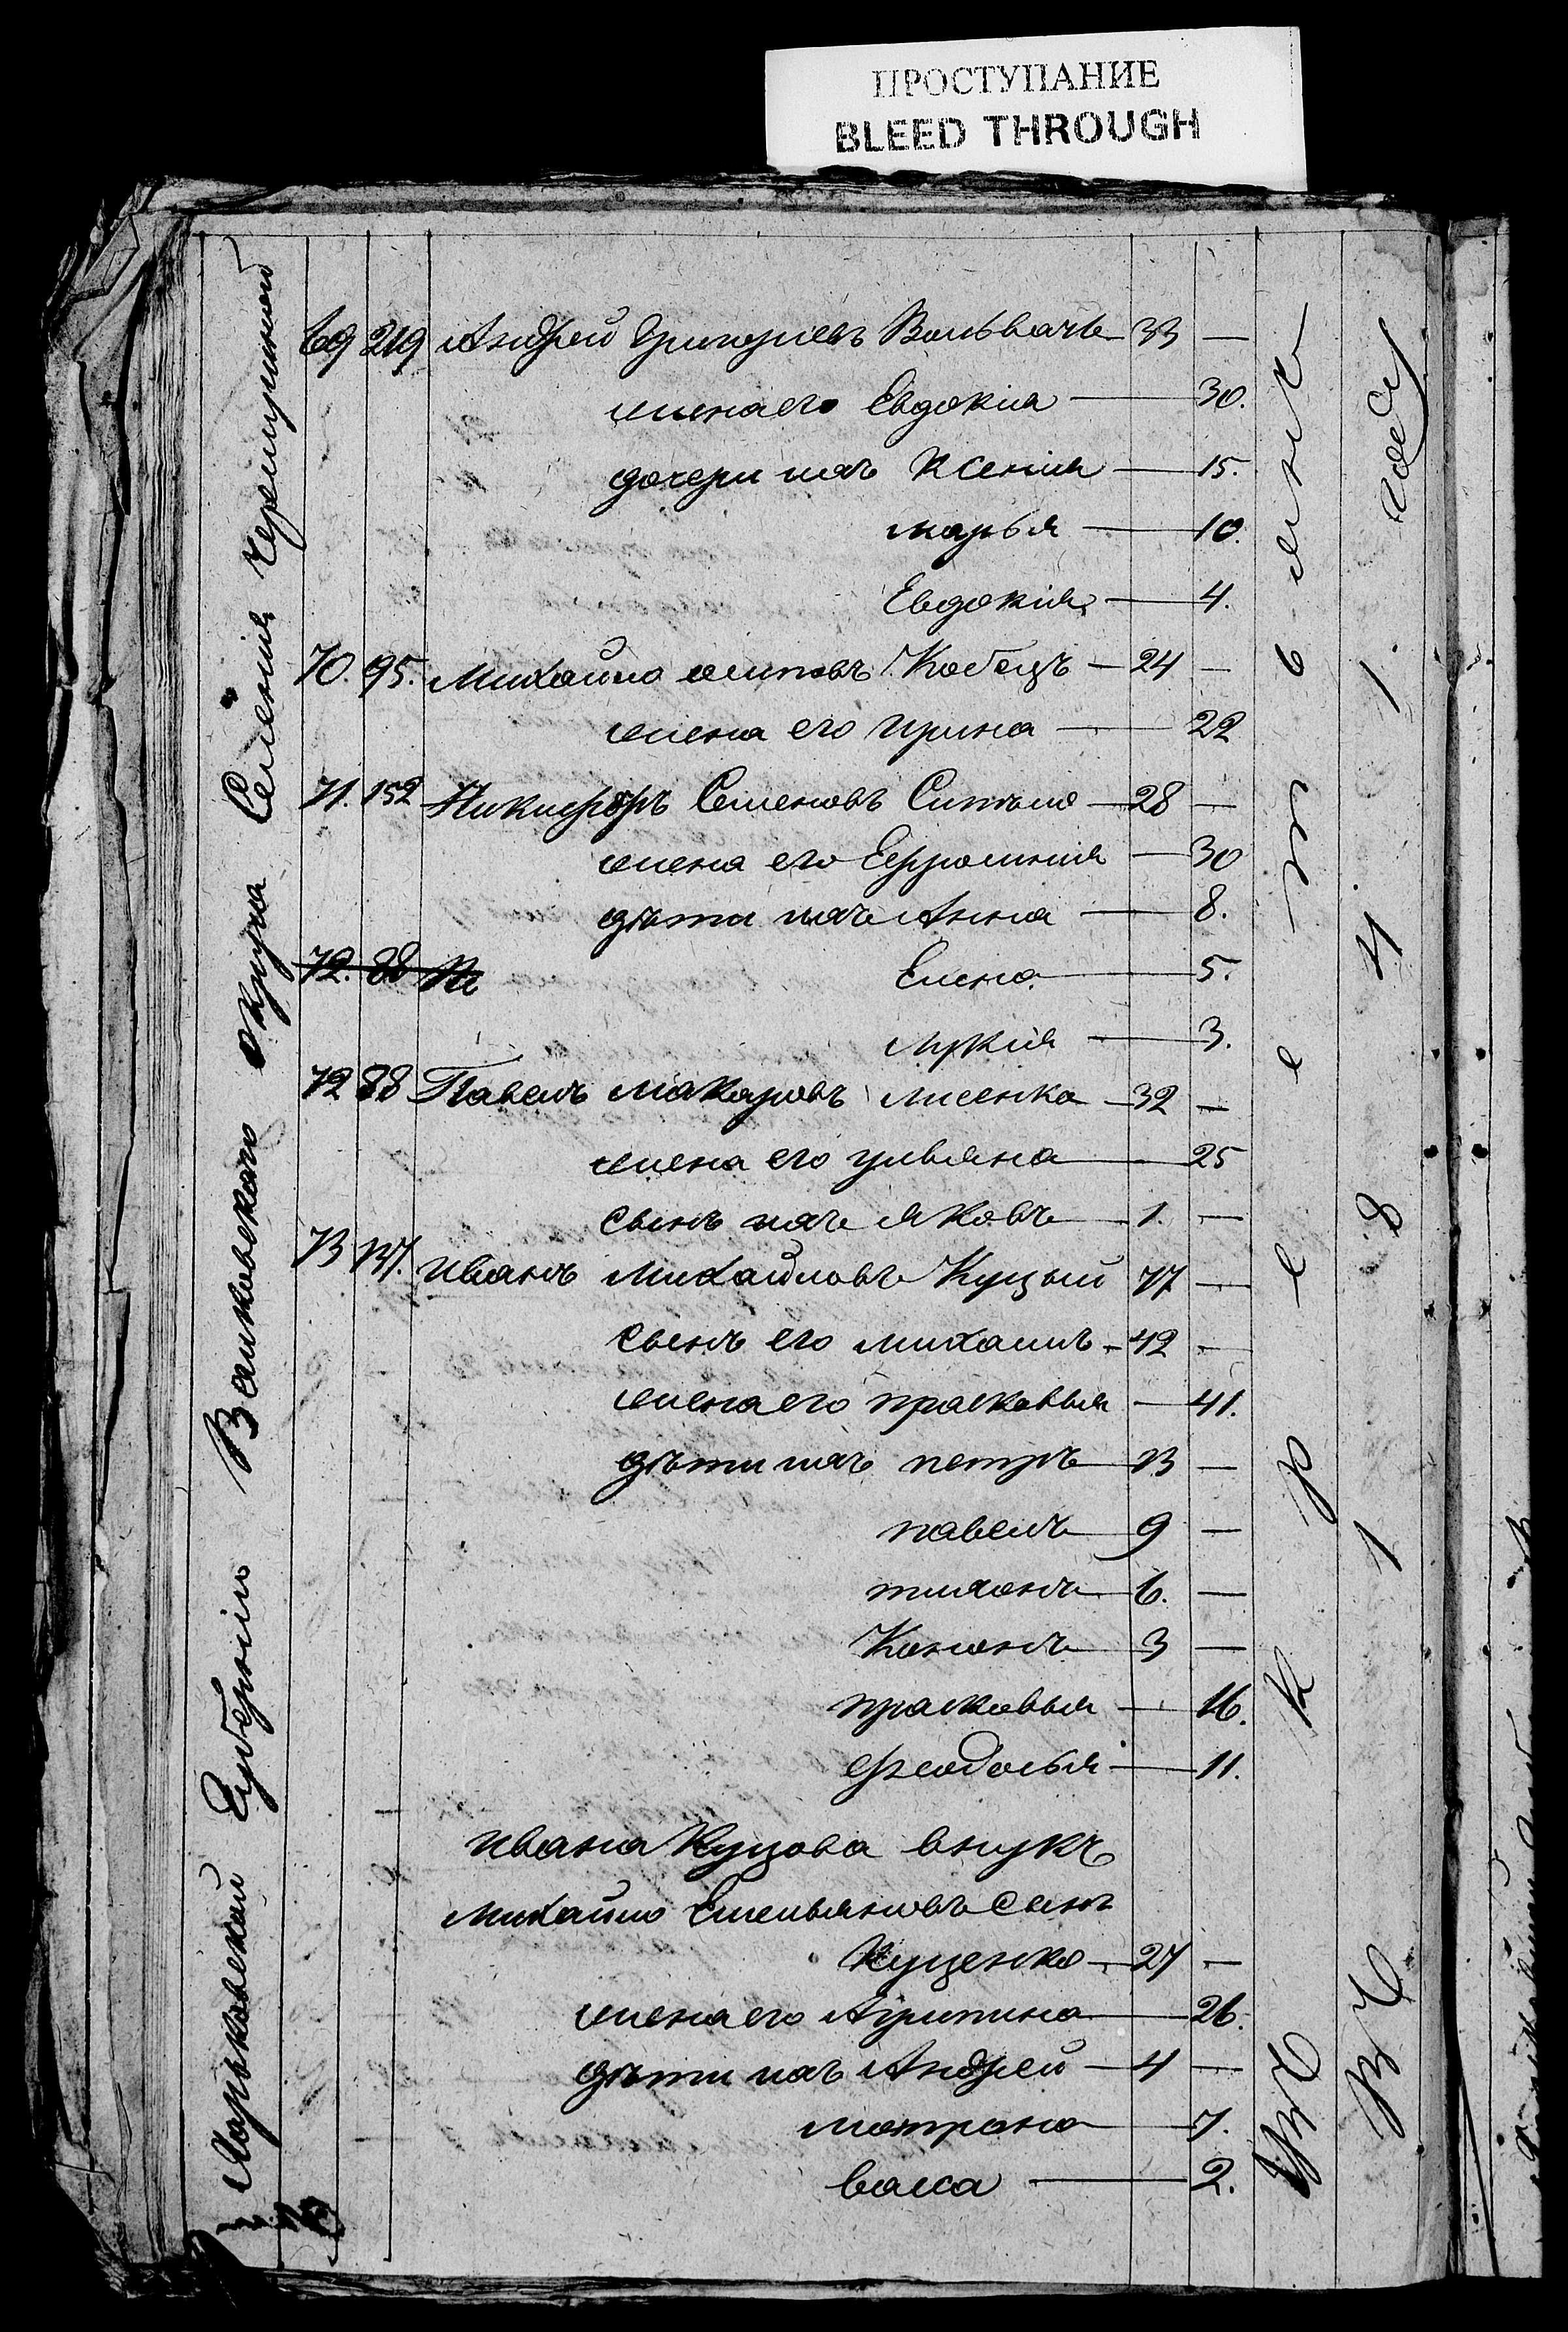 ПРОСТУПАНИЕ
BLEED THROUGH
Харьковской Губерніи Валковского округа Селенія
69 219 Андрей Григорьевъ Вольвачъ 33 —
жена его Евдокия — 30.
дочери ихъ Ксения — 15.
марья — 10.
Евдокия — 4.
70. 95. Михайло осиповъ Кобецъ — 24 —
жена его ирина — 22
71. 152 Никифоръ Семеновъ Ситало — 28 —
жена его Ефросиния — 30
дѣти ихъ Анна — 8.
72. 88
Елена — 5.
лукия — 3.
72 88 Павелъ макаровъ лисенка — 32 —
жена его ульяна — 25
сынъ ихъ яковъ — 1. —
73 137. иванъ михайловъ Куцый 77 —
сынъ его михаилъ — 42 —
жена его прасковья — 41.
дѣти ихъ петръ — 13 —
павелъ — 9 —
тихонъ — 6. —
Кононъ — 3 —
прасковья — 16.
феодосья — 11.
ивана Куцова внукъ
михайло Емельяновъ сынъ
Куценко — 27 —
жена его Агрипина — 26.
дѣти ихъ Андрей — 4 —
матрона — 7.
васса — 2.
въ 1841 году